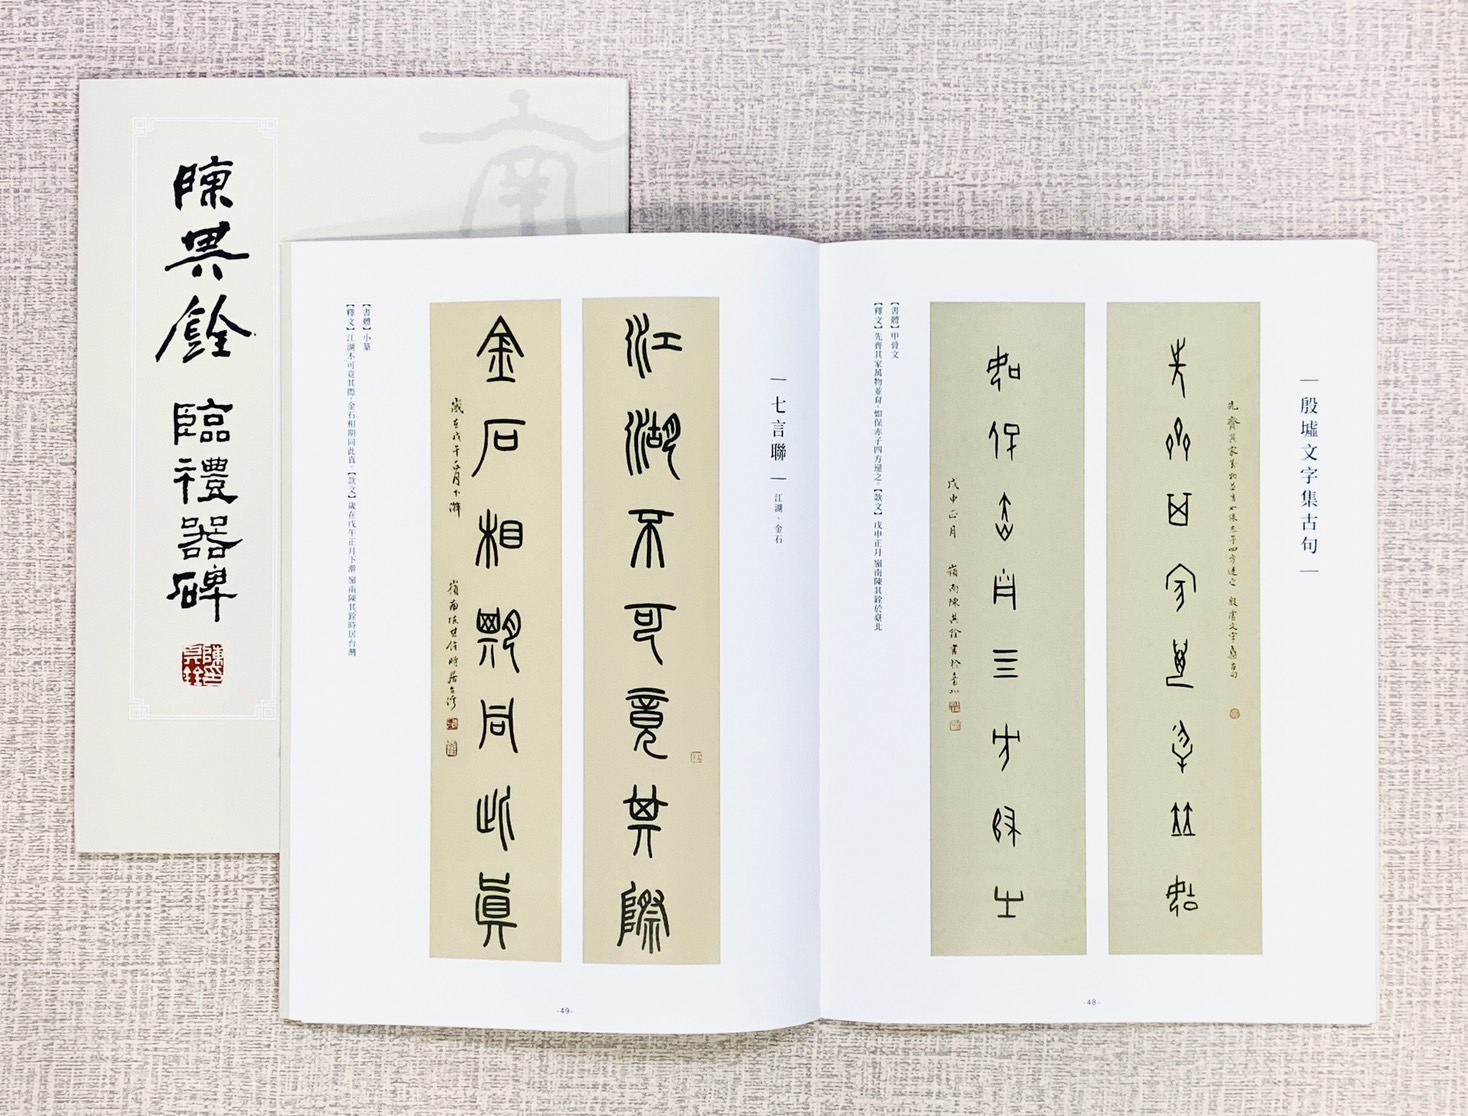 陳其銓 臨禮器碑
南
殷墟文字集古句
先齊其家萬物並育如保赤子四方達之 殷虛文字集古句
先齊其家萬物並育
如保赤子四方歸之
戊申正月 嶺南陳其銓書於臺北
【書體】甲骨文
【釋文】先齊其家萬物並育,如保赤子四方歸之。【款文】戊申正月 嶺南陳其銓於臺北
-48-
七言聯
江湖、金石
江湖不可竟其際
金石相期同此真
歲在戊午正月下澣 嶺南陳其銓時居台灣
【書體】小篆
【釋文】江湖不可竟其際,金石相期同此真。【款文】歲在戊午正月下澣 嶺南陳其銓時居台灣
-49-